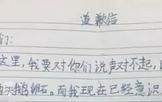 道歉信
们:
这里,我要对你们说声对不起,
而我现在已经意识